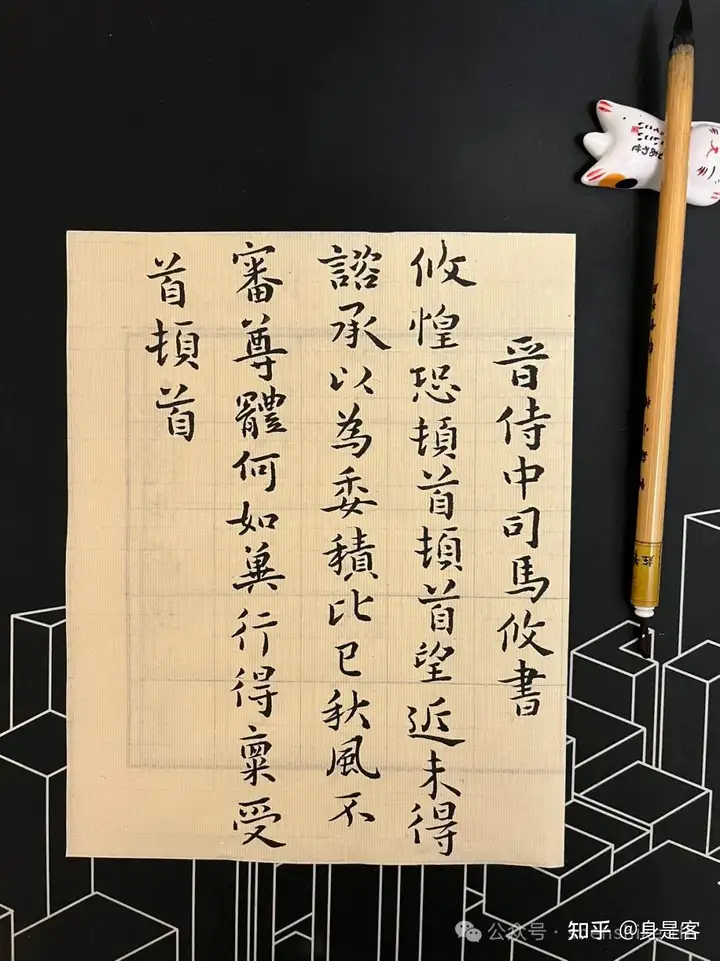 晉侍中司馬攸書
攸惶恐頓首頓首望近未得
諮承以為委積比已秋風不
審尊體何如冀行得稟受
首頓首
公众号
知乎 @身是客